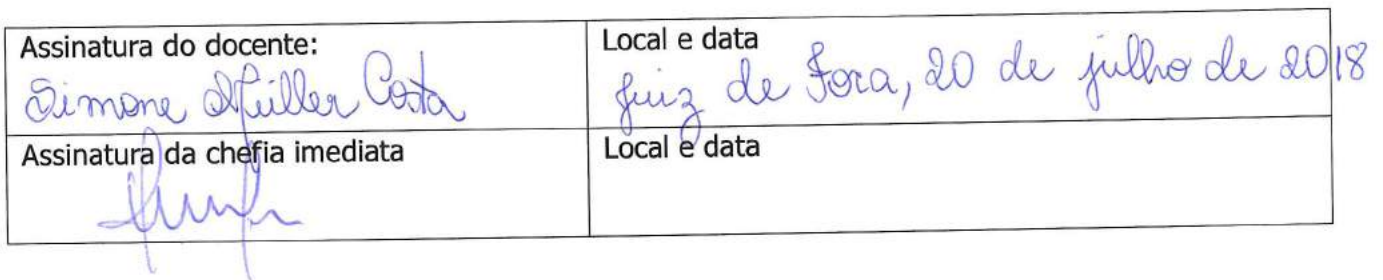 Assinatura do docente:
Simone Müller Costa
Local e data
Juiz de Fora, 20 de julho de 2018
Assinatura da chefia imediata
Local e data